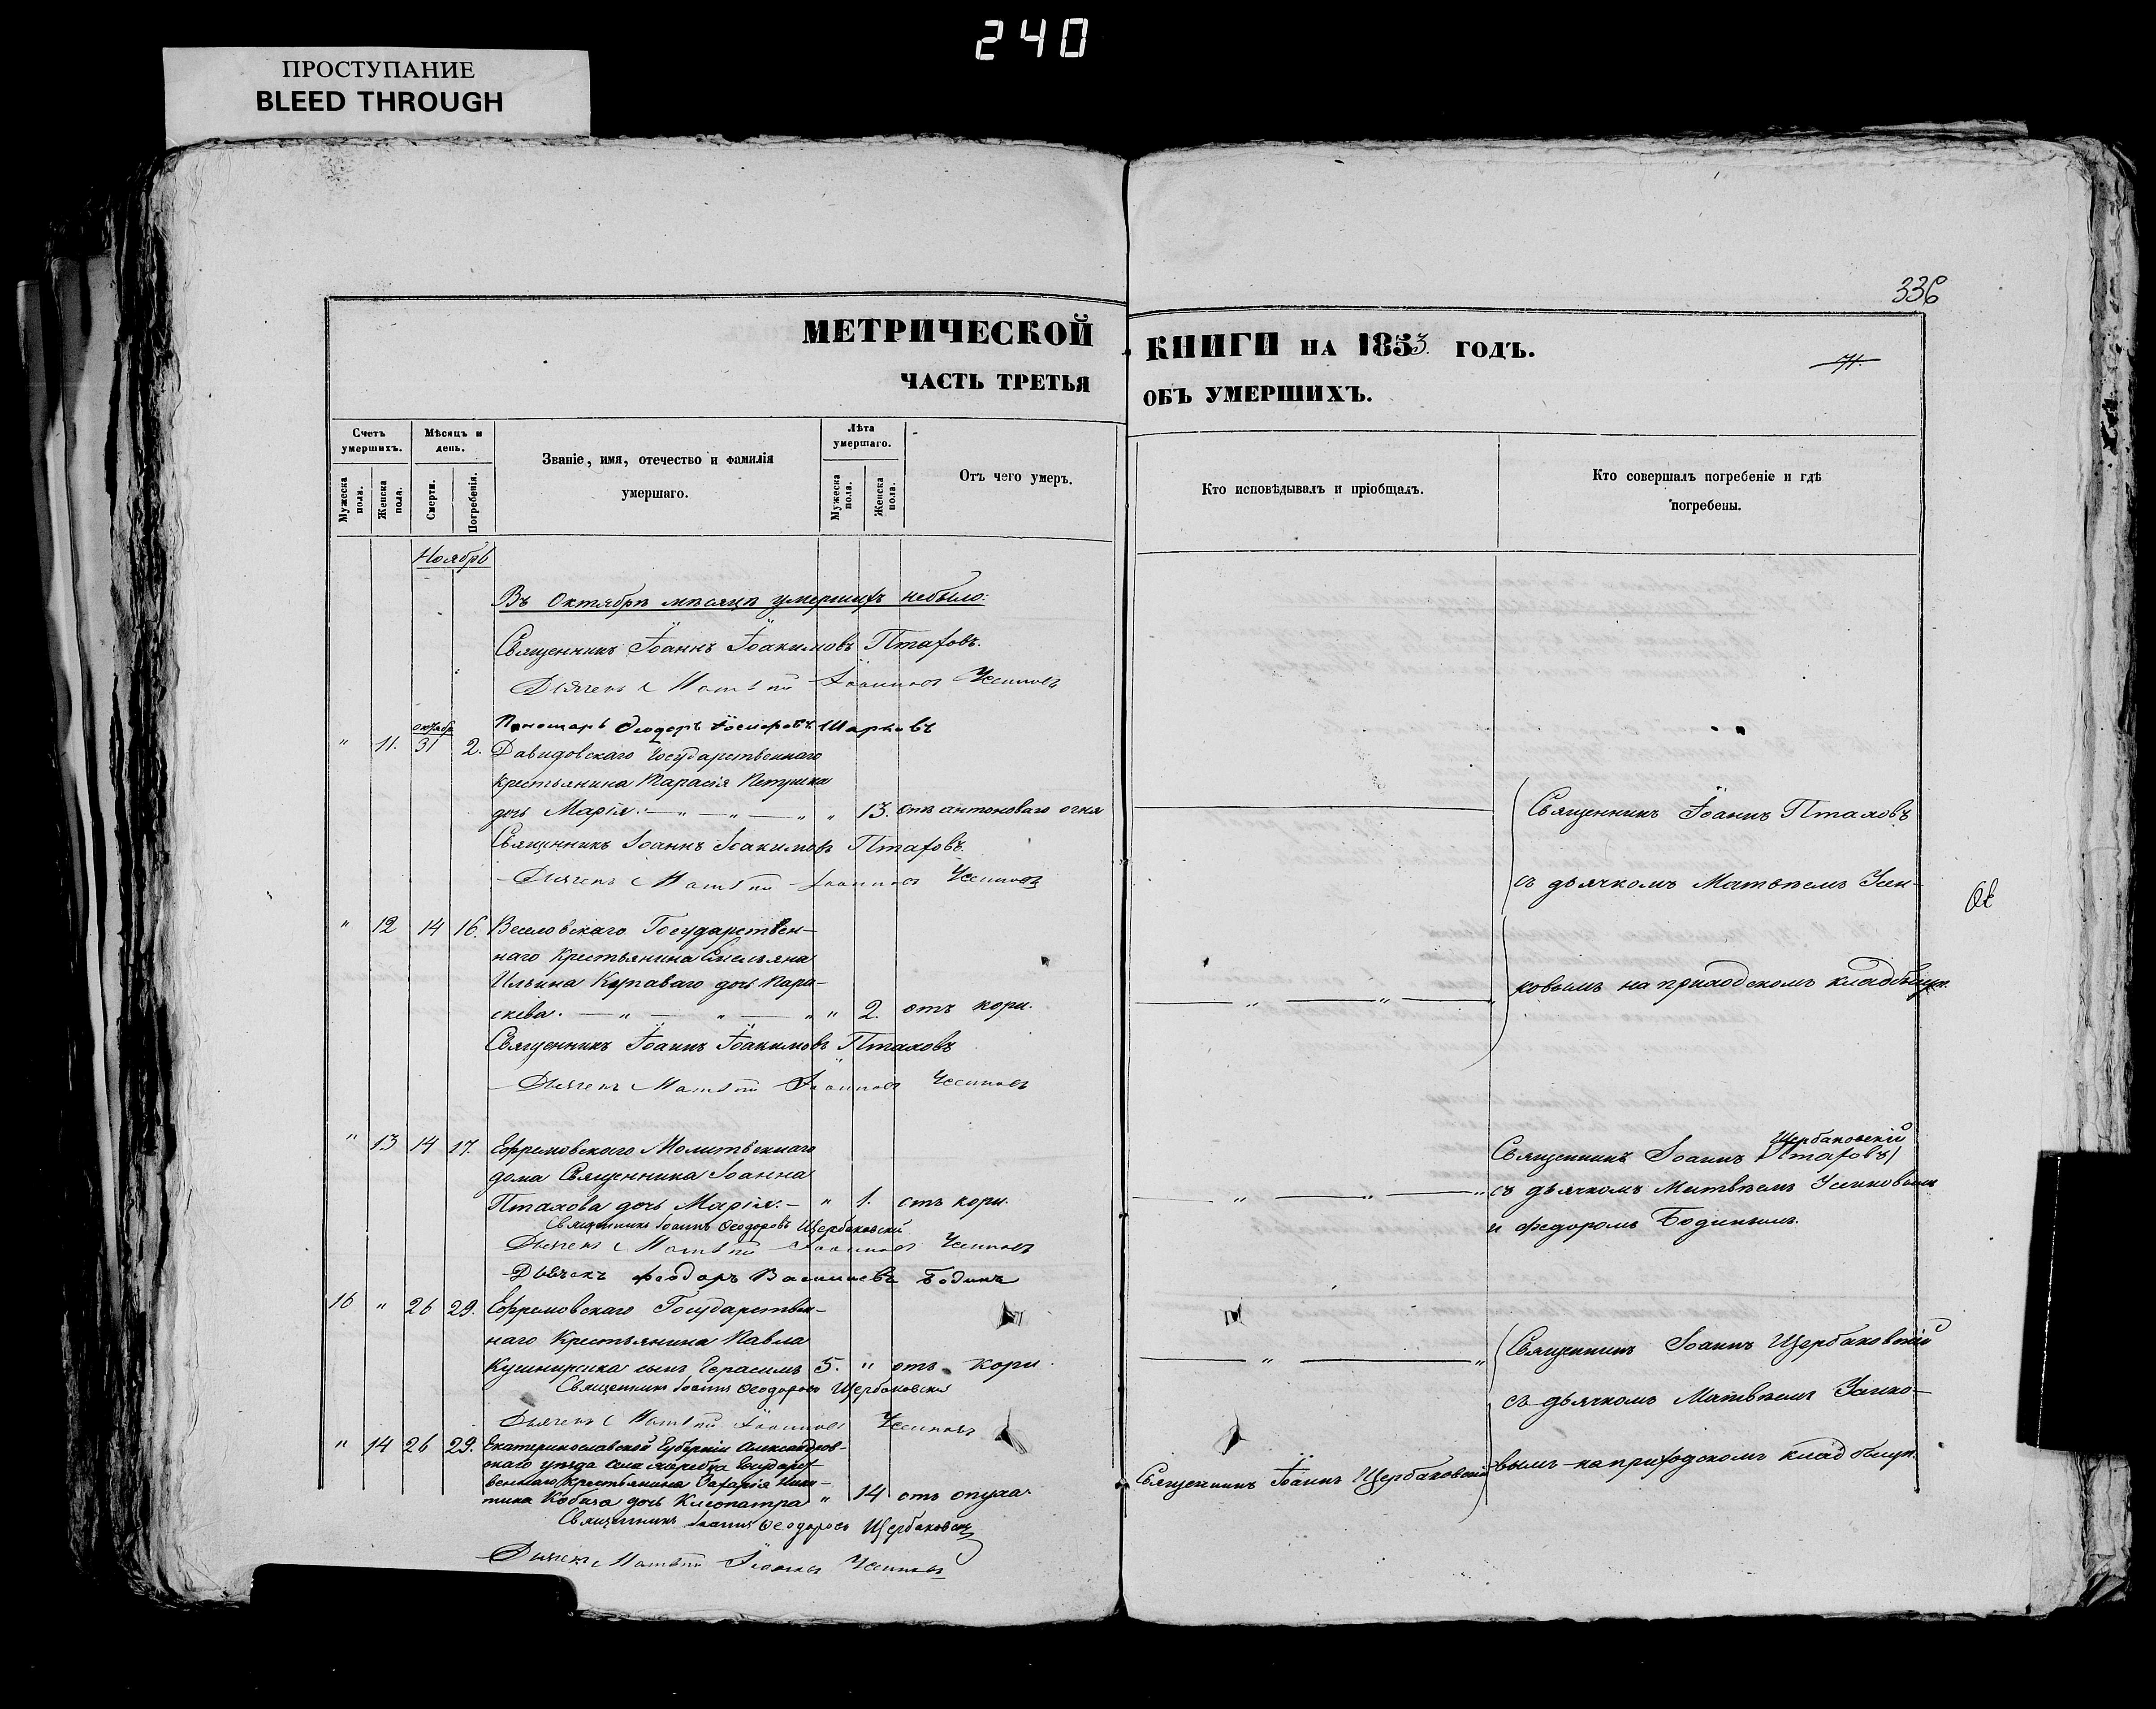 240
ПРОСТУПАНИЕ
BLEED THROUGH
336
МЕТРИЧЕСКОЙ КНИГИ НА 1853. ГОДЪ.
ЧАСТЬ ТРЕТЬЯ ОБЪ УМЕРШИХЪ.
Счетъ умершихъ.
Мужеска пола.
Женска пола.
Мѣсяцъ и день.
Смерти.
Погребенія.
Званіе, имя, отечество и фамилія
умершаго.
Лѣта умершаго.
Мужеска пола.
Женска пола.
Отъ чего умеръ.
Кто исповѣдывалъ и пріобщалъ.
Кто совершалъ погребеніе и гдѣ
погребены.
Ноябрь
Въ Октябрѣ мѣсяцѣ умершихъ небыло:
Священникъ Іоаннъ Іоакимовъ Птаховъ.
Дьячекъ Матѳѣй Іоанновъ Усиковъ
Пономарь Ѳеодоръ
октября
" 11. 31 2. Давидовскаго Государственнаго
крестьянина Тарасія Петренка
дочь Марія: — " — " — " " 13. отъ антоноваго огня
Священникъ Іоаннъ Іоакимовъ Птаховъ.
Дьячекъ Матѳѣй Іоанновъ Усиковъ
Священникъ Іоаннъ Птаховъ
съ дьячкомъ Матвѣемъ Уси-
ковымъ на приходскомъ кладбищѣ.
" 12 14 16. Веселовскаго Государствен-
наго Крестьянина Емельяна
Ильина дочь Пара-
скева. — " — " — " " 2. отъ кори.
Священникъ Іоаннъ Іоакимовъ Птаховъ
Дьячекъ Матѳѣй Іоанновъ Усиковъ
" 13 14 17. Ефремовскаго Молитвеннаго
дома Священника Іоанна
Птахова дочь Марія: — " 1. отъ кори.
Священникъ Іоаннъ Ѳеодоровъ Щербаковскій
Дьячекъ Матѳѣй Іоанновъ Усиковъ
Дьячекъ Ѳеодоръ Васильевъ Бодинъ
Щербаковскій
Священникъ Іоаннъ Птаховъ
съ дьячкомъ Матвѣемъ Усиковымъ
и Федоромъ Бодинымъ.
16 " 26 29. Ефремовскаго Государствен-
наго Крестьянина Павла
Кушниренка сынъ Герасимъ 5. " отъ кори.
Священникъ Іоаннъ Ѳеодоровъ Щербаковскій
Дьячекъ Матѳѣй Іоанновъ Усиковъ
Священникъ Іоаннъ Щербаковскій
съ дьячкомъ Матвѣемъ Усико-
вымъ на приходскомъ кладбищѣ.
" 14 26 29. Екатеринославской Губерніи Александров-
скаго уѣзда села Жеребца Государст-
веннаго Крестьянина Захарія Ники-
тина дочь Клеопатра " 14 отъ опуха.
Священникъ Іоаннъ Щербаковскій
Священникъ Іоаннъ Ѳеодоровъ Щербаковскій
Дьячекъ Матѳѣй Іоанновъ Усиковъ